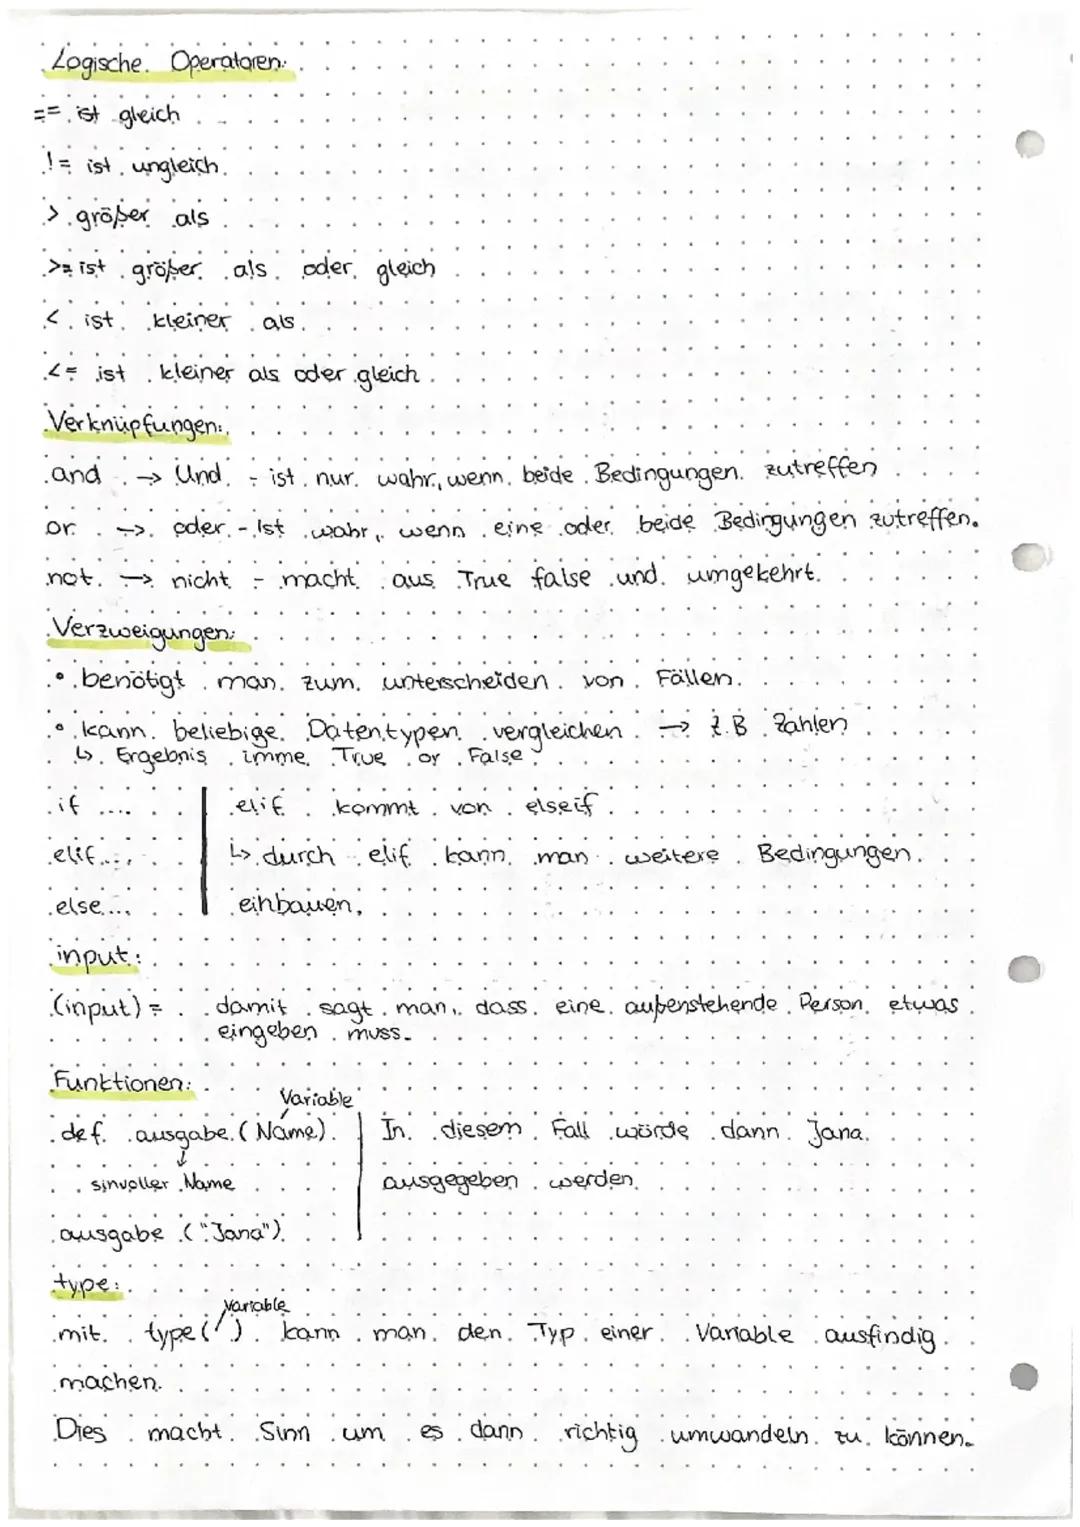 Logische Operatoren:
== ist gleich
!= ist ungleich
> größer als
>= ist größer als oder gleich
< ist kleiner als
<= ist kleiner als oder gleich
Verknüpfungen:
and → Und - ist nur wahr, wenn beide Bedingungen zutreffen
or → oder - Ist wahr, wenn eine oder beide Bedingungen zutreffen.
not → nicht - macht aus True false und umgekehrt.
Verzweigungen:
• benötigt man zum unterscheiden von Fällen.
• kann beliebige Datentypen vergleichen → z.B Zahlen
↳ Ergebnis imme True or False
if ....
elif ....
else ....
elif kommt von elseif
↳ durch elif kann man weitere Bedingungen
einbauen.
input:
(input) = damit sagt man, dass eine außenstehende Person etwas
eingeben muss.
Funktionen:
Variable
def ausgabe (Name)
↓
sinvoller Name
ausgabe ("Jana")
In diesem Fall würde dann Jana
ausgegeben werden.
type:
Variable
mit type( ) kann man den Typ einer Variable ausfindig
machen.
Dies macht Sinn um es dann richtig umwandeln zu können.